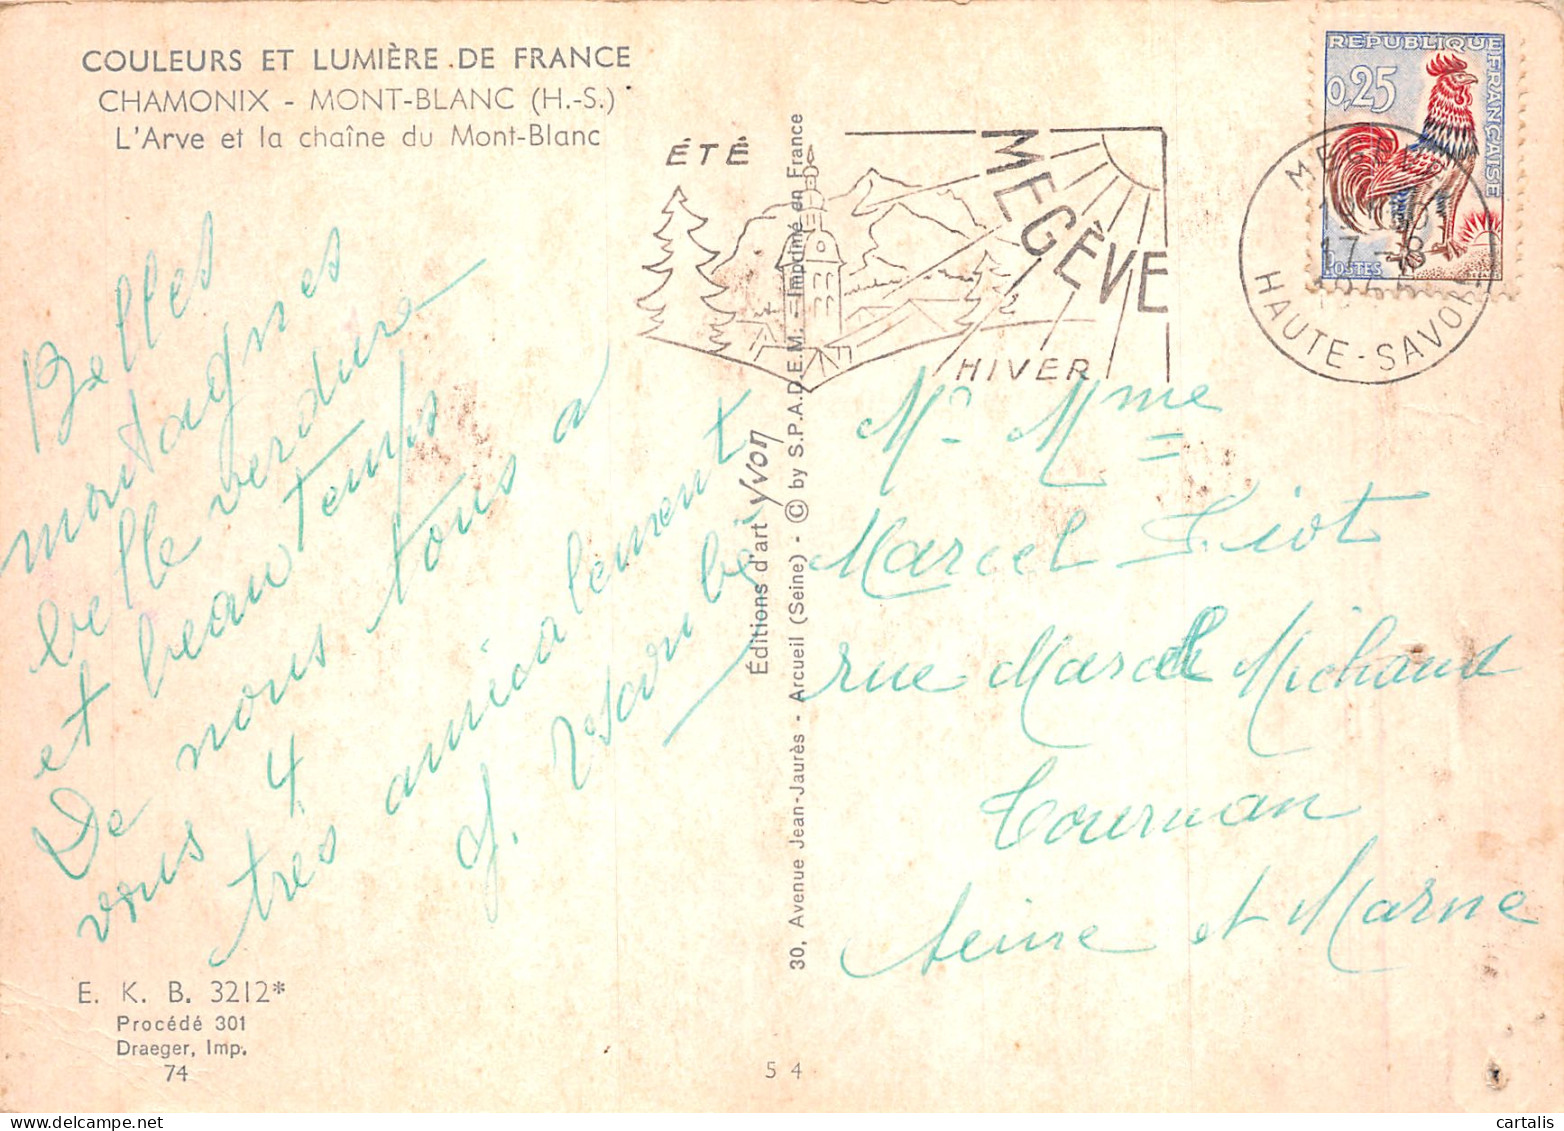 COULEURS ET LUMIÈRE DE FRANCE
CHAMONIX - MONT-BLANC (H.-S.)
L'Arve et la chaîne du Mont-Blanc
Belles
montagnes
belle verdure
et beau temps
De nous tous a
vous 4
très amicalement
J.
E. K. B. 3212*
Procédé 301
Draeger, Imp.
74
Éditions d'art Yvon
30, Avenue Jean-Jaurès - Arcueil (Seine) - © by S.P.A.D.E.M. - Imprimé en France
5 4
ÉTÉ
MEGÈVE
HIVER
REPUBLIQUE FRANÇAISE
0,25
POSTES
MEGÈVE
17 - 8
HAUTE-SAVOIE
Mr Mme
Marcel
rue Marcel Michaud
Tournan
Seine et Marne
cartalis